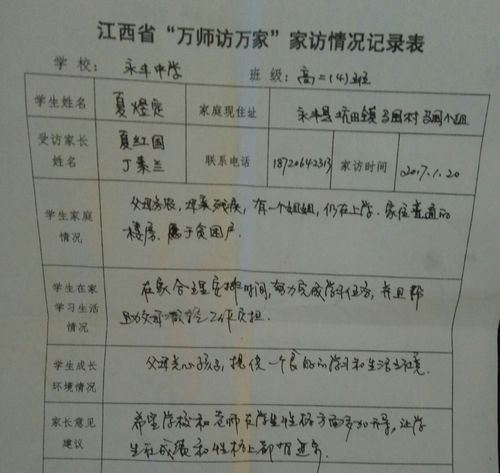 江西省“万师访万家”家访情况记录表
学 校： 永丰中学 班 级：高二(4)班
学生姓名 夏煜宏 家庭现住址 永丰县坑田镇
受访家长 夏红国 联系电话 18720642313 家访时间 2017.1.20
姓名 丁素兰
学生家庭 父母务农，母亲残疾，有一个姐姐，仍在上学。家住普通的
情况 楼房，属于贫困户。
学生在家 在家合理安排时间，努力完成学习任务，并且帮
学习生活 助父母减轻工作负担．
情况
学生成长 父母关心孩子，提供一个良好的学习和生活环境．
环境情况
家长意见 希望学校和老师在学生性格方面多加开导，让学
建议 生在成绩和性格上都有进步．